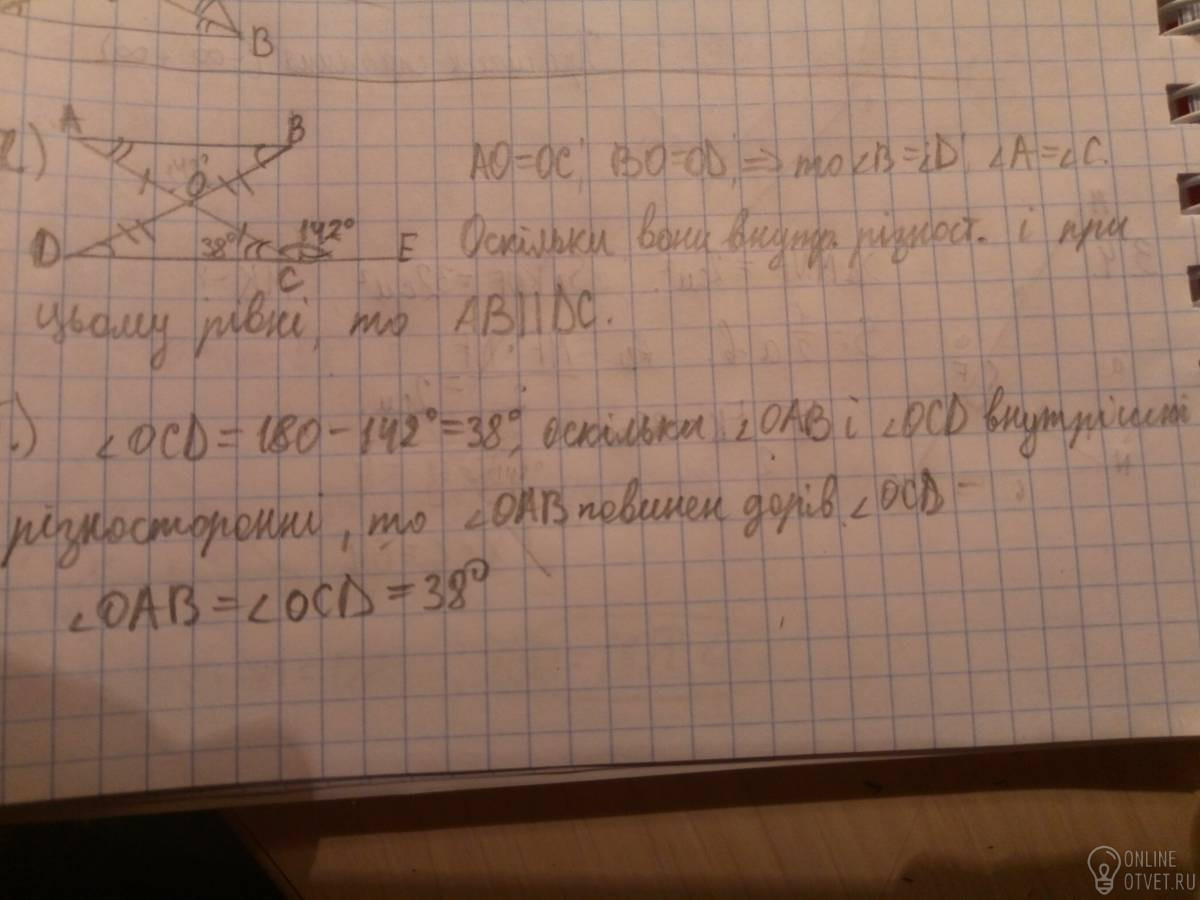 B
2)
A
B
O
D
38°
142°
C
E
AO=OC, BO=OD, => то ∠B=∠D, ∠A=∠C.
Оскільки вони внутр. різност. і при
цьому рівні, то AB||DC.
.) ∠OCD=180-142°=38°, оскільки ∠OAB і ∠OCD внутрішні
різносторонні, то ∠OAB повинен дорів. ∠OCD -
∠OAB=∠OCD=38°
ONLINE
OTVET.RU